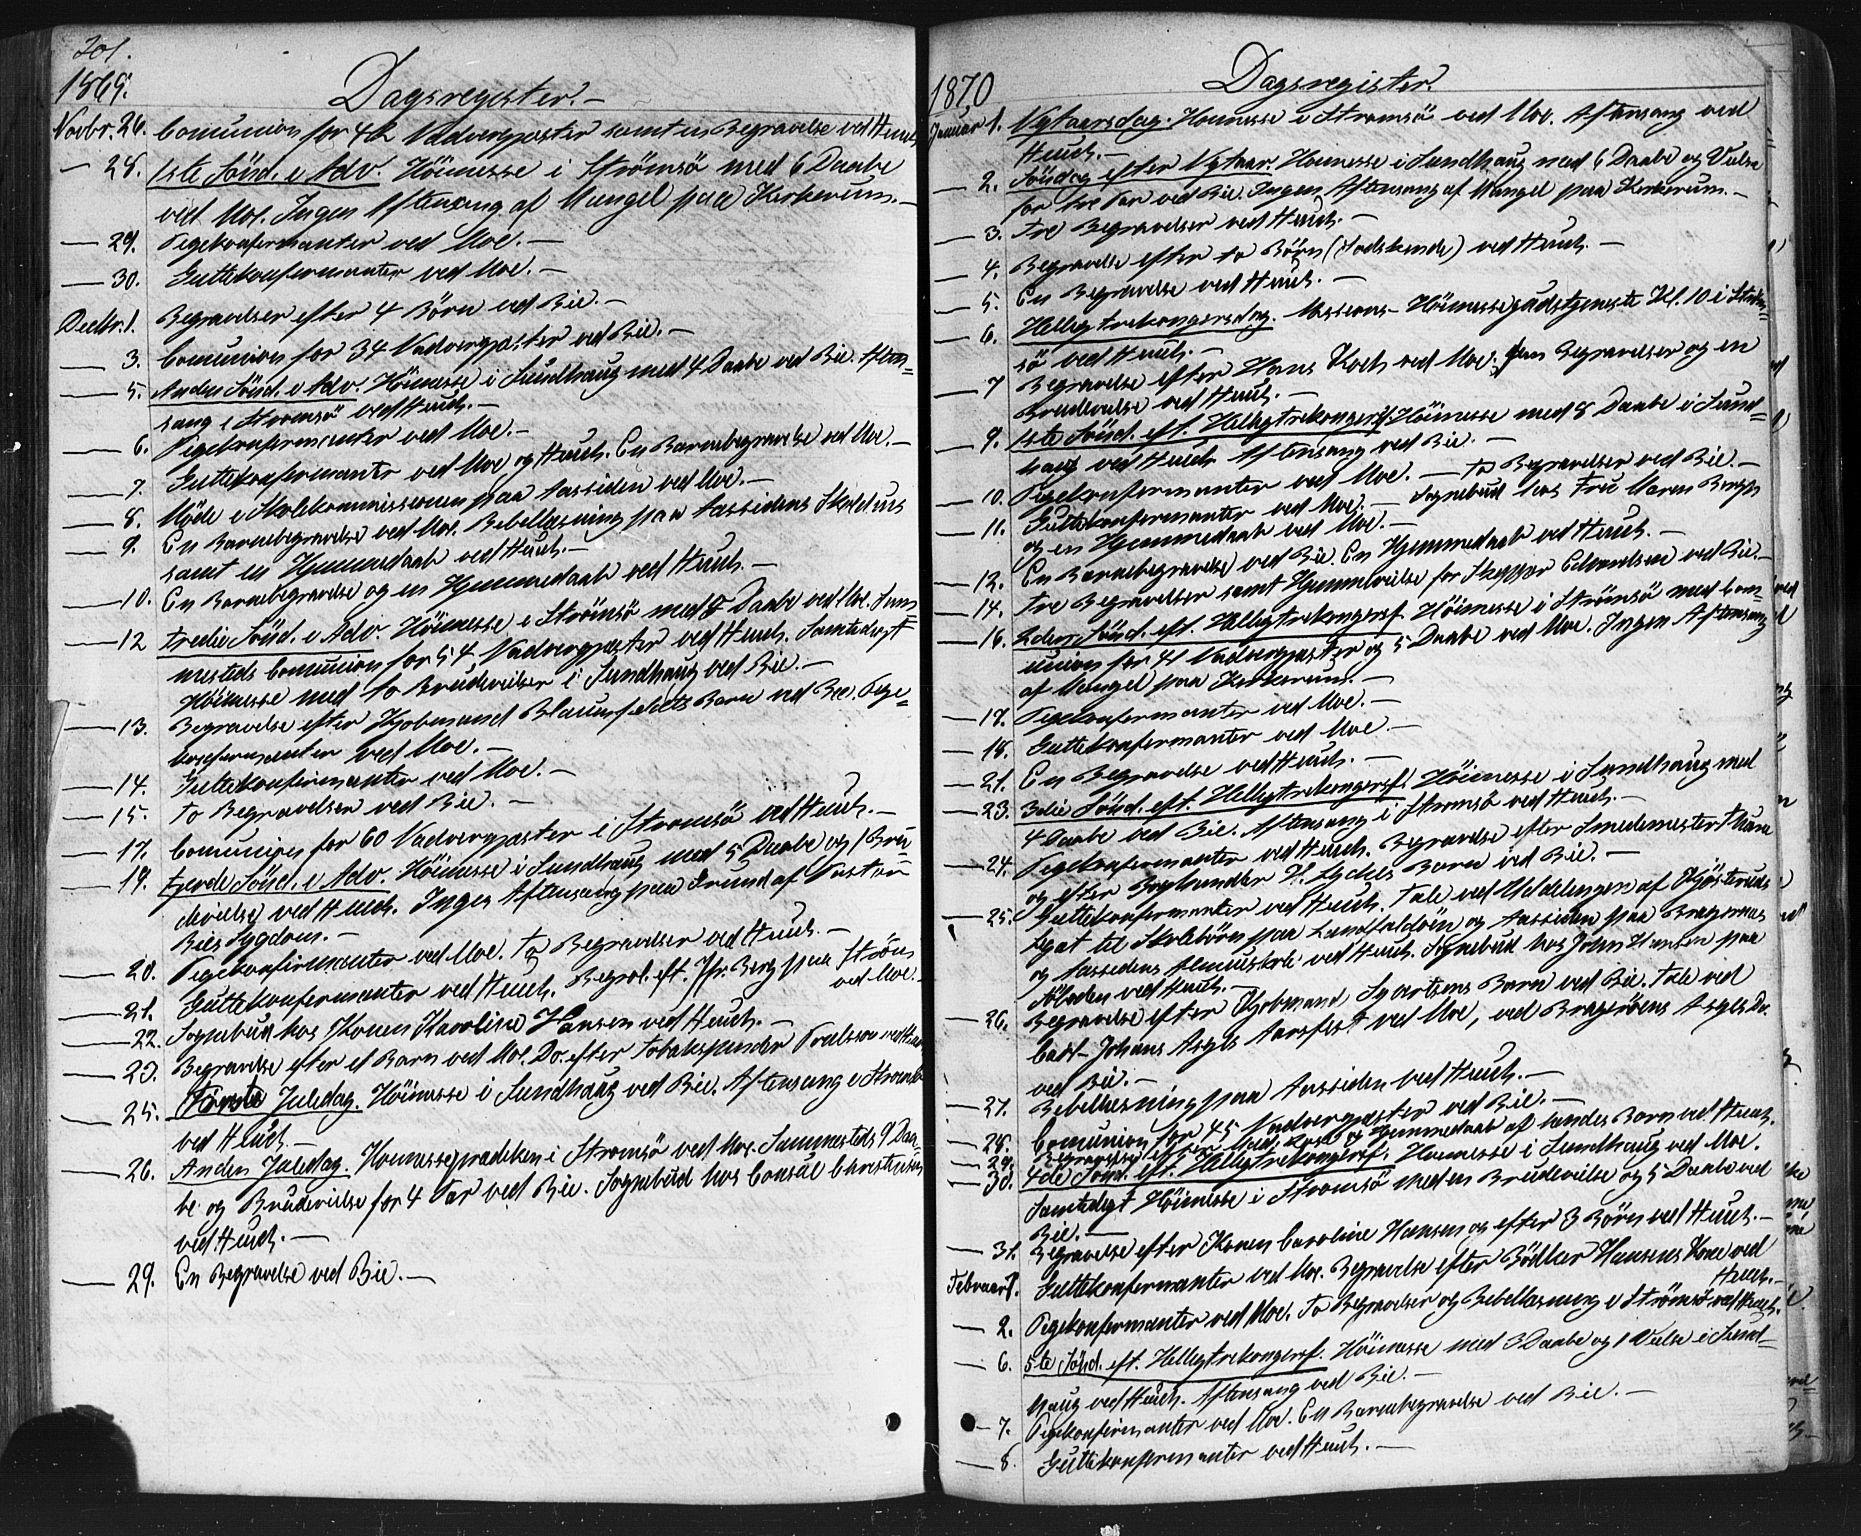 201.
1869.
Dagsregister.—
Novbr. 26. Comunion for 42 Nadvergjæster samt en Begravelse ved Heuch
— 28. 1ste Sönd. i Adv. Höimesse i Strömsö med 6 Daabe
ved Moe. Ingen Aftensang af Mangel paa Kirkerum.—
— 29. Pigekonfirmanter ved Moe.—
— 30. Guttekonfirmanter ved Moe.—
Decbr. 1. Begravelser efter 4 Börn ved Bie.—
— 3. Comunion for 34 Nadvergjæster ved Bie.—
— 5. Anden Sönd. i Adv. Höimesse i Sundhaug med 4 Daabe ved Bie. Aften=
sang i Strömsö ved Heuch.—
— 6. Pigekonfirmanter ved Moe.—
— 7. Guttekonfirmanter ved Moe og Heuch. En Barnebegravelse ved Moe.—
— 8. Möde i Skolekommissionen paa Tassiden ved Moe.—
— 9. En Barnebegravelse ved Moe. Bibellæsning paa Tassidens Skolehus
samt en Hjemmedaab ved Heuch.—
— 10. En Barnebegravelse og en Hjemmedaab ved Heuch.—
— 12 Tredie Sönd. i Adv. Höimesse i Strömsö med 8 Daabe ved Moe. Sam=
mesteds Comunion for 54 Nadvergjæster ved Heuch. Samtidigt
Höimesse med to Brudevielser i Sundhaug ved Bie.—
— 13. Begravelse efter Kjøbmand Blaunfeldts Barn ved Bie. Pige=
konfirmanter ved Moe.—
— 14. Guttekonfirmanter ved Moe.—
— 15. To Begravelser ved Bie.—
— 17. Comunion for 60 Nadvergjæster i Strömsö ved Heuch.—
— 19. Fjerde Sönd. i Adv. Höimesse i Sundhaug med 5 Daabe og 1 Bru
devielse ved Heuch. Ingen Aftensang paa Grund af Pastor
Bies Sygdom.—
— 20. Pigekonfirmanter ved Moe. To Begravelser ved Heuch.—
— 21. Guttekonfirmanter ved Heuch. Begrav. eft. Jfr. Berg paa Ströms
ved Moe.—
— 22. Sognebud hos Konen Karoline Hansen ved Heuch.—
— 23. Begravelse efter et Barn ved Moe. Do. efter Tobakspinder Truelsen ved Heuch
— 25. Første Juledag. Höimesse i Sundhaug ved Bie. Aftensang i Strömsö
ved Heuch.—
— 26. Anden Juledag. Höimesseprædiken i Strömsö ved Moe. Sammesteds 9 Daa=
be og Brudevielse for 4 Par ved Bie. Sognebud hos Consul Christiansen
ved Heuch.—
— 29. En Begravelse ved Bie.—
1870
Dagsregister.
Januar 1. Nytaarsdag. Höimesse i Strömsö ved Moe. Aftensang ved
Heuch.—
— 2. Söndag efter Nytaar. Höimesse i Sundhaug med 6 Daabe og Vielse
for tre Par ved Bie. Ingen Aftensang af Mangel paa Kirkerum.—
— 3. Tre Begravelser ved Heuch.—
— 4. Begravelse efter to Börn (Dødfødte) ved Heuch.—
— 5. En Begravelse ved Heuch.—
— 6. Helligtrekongersdag. Missions-Höimessegudstjeneste Kl. 10 i Ström=
sö ved Heuch.—
— 7 Begravelse efter Hans Koch ved Moe; fem Begravelser og en
Brudevielse ved Heuch.—
— 9. 1ste Sönd. eft. Helligtrekongersf. Höimesse med 8 Daabe i Sund=
haug ved Heuch. Aftensang ved Bie.—
— 10. Pigekonfirmanter ved Moe.— To Begravelser ved Bie.—
— 11. Guttekonfirmanter ved Moe.— Sognebud hos Fru Maren Bergh
og en Hjemmedaab ved Moe.—
— 12. En Barnebegravelse ved Bie. En Hjemmedaab ved Heuch.—
— 14. Tre Begravelser samt Hjemmevielse for Skipper Edvardsen ved Bie.—
— 16. 2den Sönd. eft. Helligtrekongersf. Höimesse i Strömsö med Com=
union for 41 Nadvergjæster og 5 Daabe ved Moe. Ingen Aftensang
af Mangel paa Kirkerum.—
— 17. Pigekonfirmanter ved Moe.—
— 18. Guttekonfirmanter ved Moe.—
— 21. En Begravelse ved Heuch.—
— 23. 3die Sönd. eft. Helligtrekongersf. Höimesse i Sundhaug med
4 Daabe ved Bie. Aftensang i Strömsö ved Heuch.—
— 24. Pigekonfirmanter ved Heuch. Begravelse efter Smedemester Thurn
og efter Boghandler H. Lyches Barn ved Bie.—
— 25. Guttekonfirmanter ved Heuch. Tale ved Uddelingen af Kjösteruds
Legat til Skolebörn paa Landfaldöen og Tassiden paa Bragernes
og Tassidens Almueskole ved Heuch. Sognebud hos John Hansen paa
ved Heuch.—
— 26. Begravelse efter Kjøbmand Syvertsens Barn ved Bie. Tale ved
Carl-Johans Asyls Aarsfest ved Moe, ved Bragernes Asyls Do.
ved Bie.—
— 27. Bibellæsning paa Tassiden ved Heuch.—
— 28. Comunion for 45 Nadvergjæster ved Bie.—
— 29. Begravelse efter og Hjemmedaab af hendes Barn ved Heuch.
— 30. 4de Sönd. eft. Helligtrekongersf. Höimesse i Sundhaug ved Moe.
Samtidigt Höimesse i Strömsö med en Brudevielse og 5 Daabe ved
Bie.—
— 31. Begravelse efter Konen Caroline Hansen og efter 3 Börn ved Heuch.—
Februar 1. Guttekonfirmanter ved Moe. Begravelse efter Bödker Hansens Kone ved
Heuch.—
— 2. Pigekonfirmanter ved Moe. To Begravelser og Bibellæsning i Strömsö ved Heuch.
— 6. 5te Sönd. eft. Helligtrekongersf. Höimesse med 3 Daabe og 1 Vielse i Sund=
haug ved Heuch. Aftensang ved Bie.—
— 7. Pigekonfirmanter ved Moe. En Barnebegravelse ved Bie.—
— 8. Guttekonfirmanter ved Heuch.—